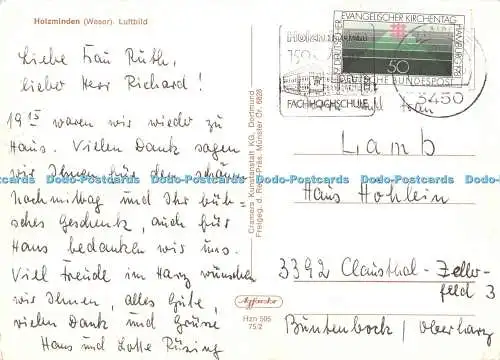 Holzminden (Weser). Luftbild
Liebe Frau Ruth,
lieber Herr Richard!
19 15 waren wir wieder zu
Haus. Vielen Dank sagen
wir Ihnen für den schönen
Nachmittag und Ihr hüb-
sches Geschenk, auch für
Hans bedanken wir uns.
Viel Freude im Harz wünschen
wir Ihnen, alles Gute,
vielen Dank und Grüsse
Hans und Lotte Rüsing
Cramers Kunstanstalt KG, Dortmund
Freigeg. d. Reg.-Präs. Münster Nr. 6826
Hzn 505
75/2
19. DEUTSCHER EVANGELISCHER KIRCHENTAG HAMBURG '81
50
DEUTSCHE BUNDESPOST
HOLZMINDEN
150
FACHHOCHSCHULE
3450
Lamb
Haus Hohlein
3392 Clausthal-Zeller-
feld 3
Buntenbock / Oberharz
Dodo-Postcards Dodo-Postcards Dodo-Postcards Dodo-Postcards Dodo-Postcards